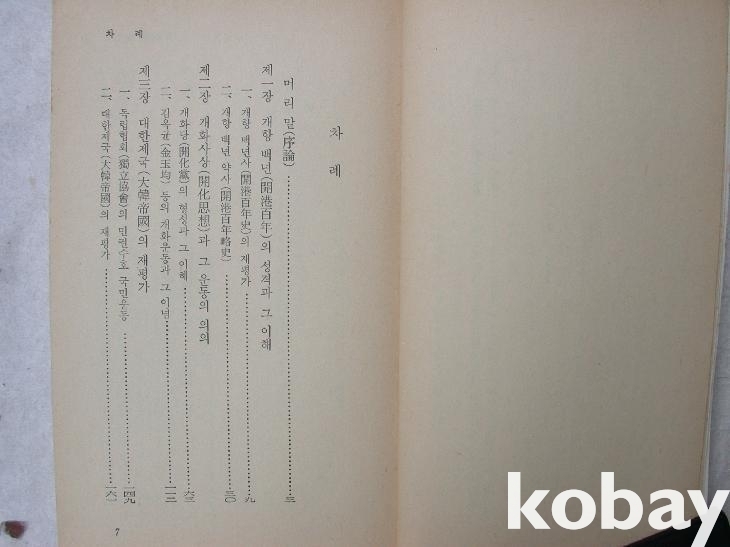 차 례
차 례
머리말(序論)……三
제一장 개항 백년(開港百年)의 성격과 그 이해
一、개항 백년사(開港百年史)의 재평가……九
二、개항 백년 약사(開港百年略史)……三〇
제二장 개화사상(開化思想)과 그 운동의 의의
一、개화당(開化黨)의 형성과 그 이해……六三
二、김옥균(金玉均) 등의 개화운동과 그 이념……一一三
제三장 대한제국(大韓帝國)의 재평가
一、독립협회(獨立協會)의 민권수호 국민운동……一四九
二、대한제국(大韓帝國)의 재평가……一六一
7
kobay